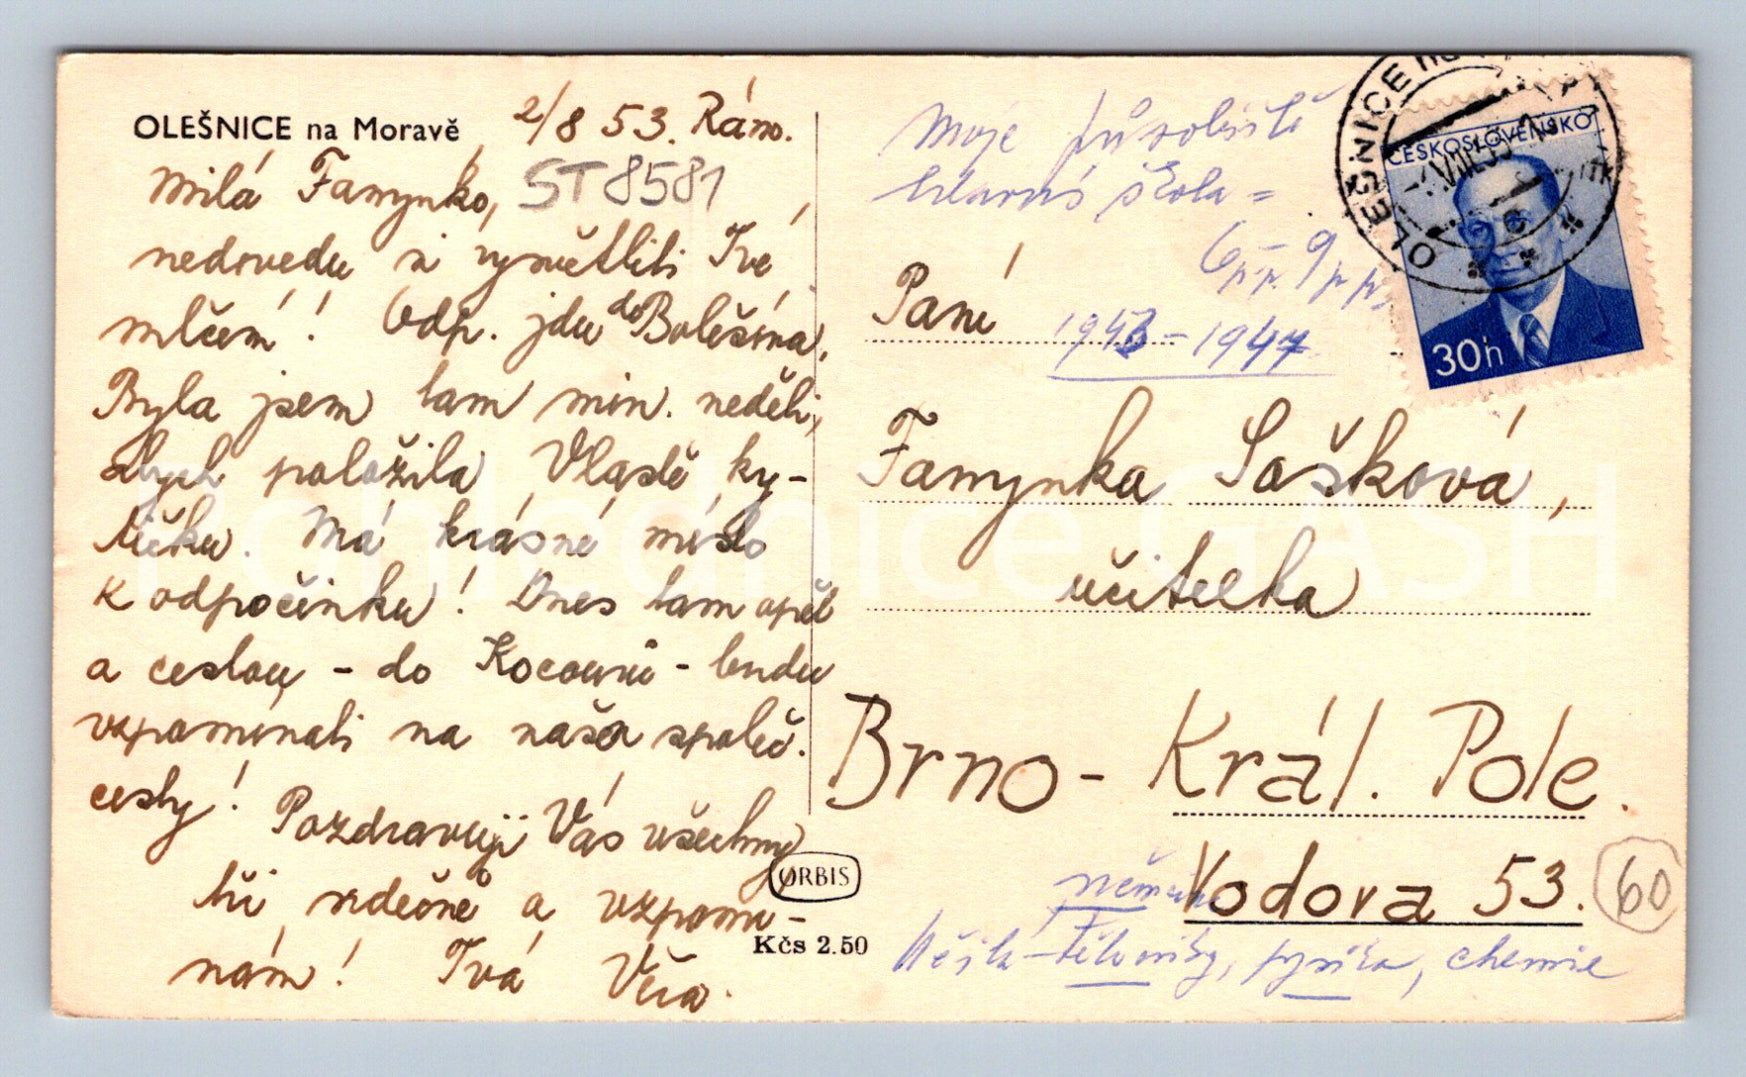 OLEŠNICE na Moravě
2/8 53. Ráno.
Milá Fanynko,
ST 8581
nedovedu si vysvětliti Tvé
mlčení! Odp. jdu do Bolešína.
Byla jsem tam min. neděli,
abych položila Vlastě ky-
tičku. Má krásné místo
k odpočinku! Dnes tam opět
a cestou - do Kocourů - budu
vzpomínati na naše společ.
cesty! Pozdravuji Vás všechny
tři srdečně a vzpomí-
nám! Tvá Věra.
ORBIS
Kčs 2.50
Moje působiště
hlavní škola =
1943-1947
OLEŠNICE na
ČESKOSLOVENSKO
30h
Paní
Fanynka Sašková,
učitelka
Brno - Král. Pole.
Vodova 53.
60
učila - tělocviky, fysika, chemie
Pohlednice GASH